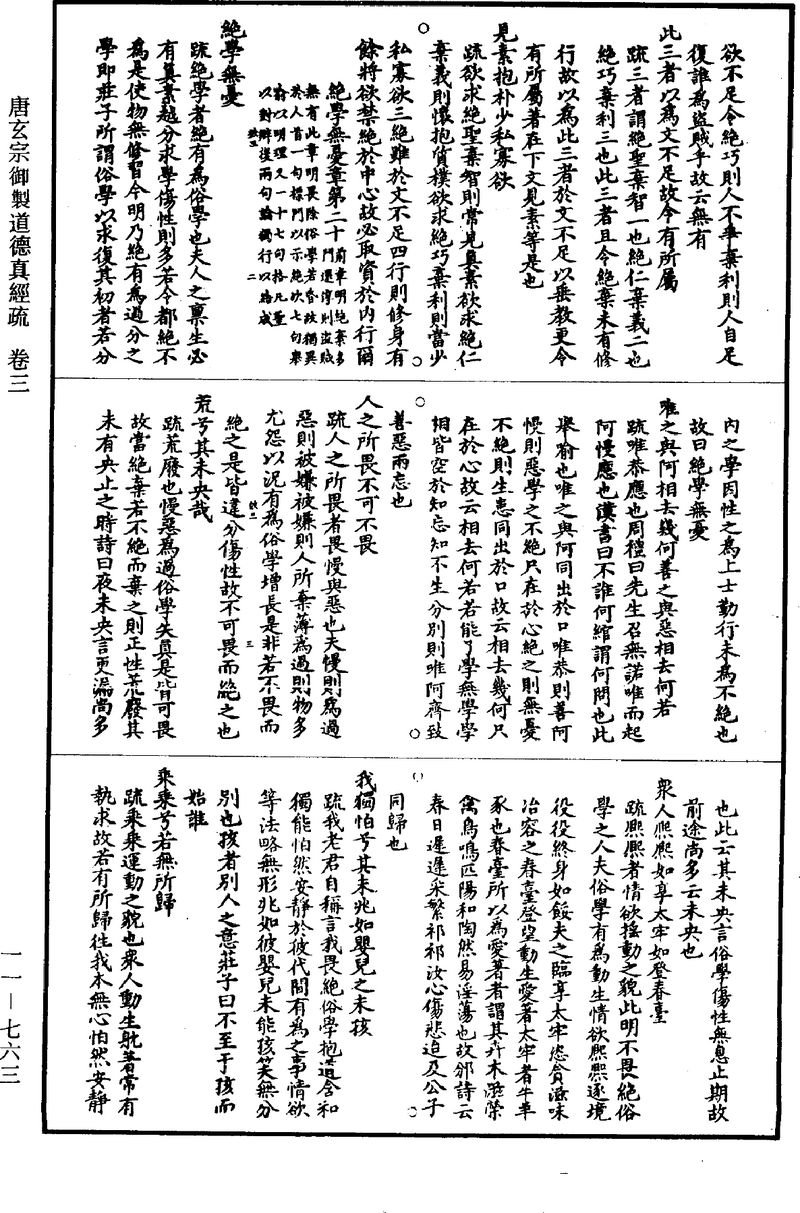 唐玄宗御製道德真經疏　卷三
欲不足令絕巧則人不爭棄利則人自足
復誰為盜賊乎故云無有
此三者以為文不足故令有所屬
疏三者謂絕聖棄智一也絕仁棄義二也
絕巧棄利三也此三者且令絕棄未有修
行故以為此三者於文不足以垂教更令
有所屬著在下文見素等是也
見素抱朴少私寡欲
疏欲求絕聖棄智則常見真素欲求絕仁
棄義則懷抱質樸欲求絕巧棄利則當少
私寡欲三絕雖於文不足四行則修身有
餘將欲禁絕於中心故必取資於內行爾
絕學無憂章第二十
前章明絕棄多門還淳則盜賊
無有此章明畏除俗學若昏故獨異
於人首一句標門以示絕次七句舉
喻以明理又一十七句格凡聖
以對辯後兩句論獨行以為成
絕學無憂
疏絕學者絕有為俗學也夫人之稟生必
有真素越分求學傷性則多若令都絕不
為是使物無修習今明乃絕有為過分之
學即莊子所謂俗學以求復其初者若分
內之學因性之為上士勤行未為不絕也
故曰絕學無憂
唯之與阿相去幾何善之與惡相去何若
疏唯恭應也周禮曰先生召無諾唯而起
阿慢應也漢書曰不誰何綰謂何問也此
舉喻也唯之與阿同出於口唯恭則善阿
慢則惡學之不絕只在於心絕之則無憂
不絕則生恚同出於口故云相去幾何只
在於心故云相去何若若能了學無學學
相皆空於知忘知不生分別則唯阿齊致
善惡兩忘也
人之所畏不可不畏
疏人之所畏者畏慢與惡也夫慢則為過
惡則被嫌被嫌則人所棄薄為過則物多
尤怨以況有為俗學增長是非若不畏而
絕之是皆違分傷性故不可畏而絕之也
荒兮其未央哉
疏荒廢也慢惡為過俗學失真是皆可畏
故當絕棄若不絕而棄之則正性荒廢其
未有央止之時詩曰夜未央言更漏尚多
也此云其未央言俗學傷性無息止期故
前途尚多云未央也
眾人熙熙如享太牢如登春臺
疏熙熙者情欲搖動之貌此明不畏絕俗
學之人夫俗學有為動生情欲熙熙逐境
役役終身如餒夫之臨享太牢恣貪滋味
冶容之春臺登望動生愛著太牢者牛羊
豕也春臺所以為愛著者謂其卉木滋榮
禽鳥鳴匹陽和陶然易淫蕩也故邠詩云
春日遲遲采蘩祁祁汝心傷悲迨及公子
同歸也
我獨怕兮其未兆如嬰兒之未孩
疏我老君自稱言我畏絕俗學抱道含和
獨能怕然安靜於彼代間有為之事情欲
等法略無形兆如彼嬰兒未能孩笑無分
別也孩者別人之意莊子曰不至于孩而
始誰
乘乘兮若無所歸
疏乘乘運動之貌也眾人動生耽著常有
執求故若有所歸往我本無心怕然安靜
一一—七六三